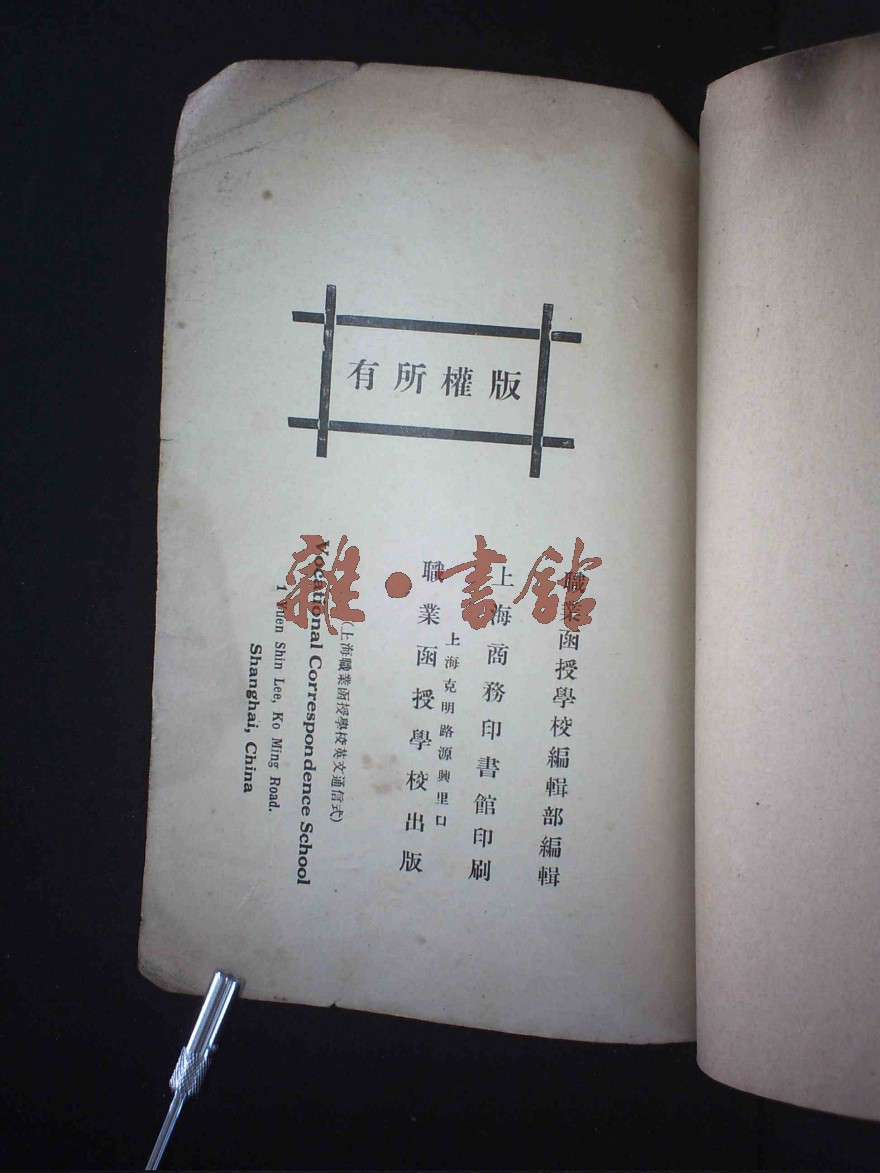 版權所有
職業函授學校編輯部編輯
上海商務印書館印刷
上海克明路源興里口
職業函授學校出版
(上海職業函授學校英文通信式)
Vocational Correspondence School
1 Yuen Shin Lee, Ko Ming Road.
Shanghai, China
雜·書館